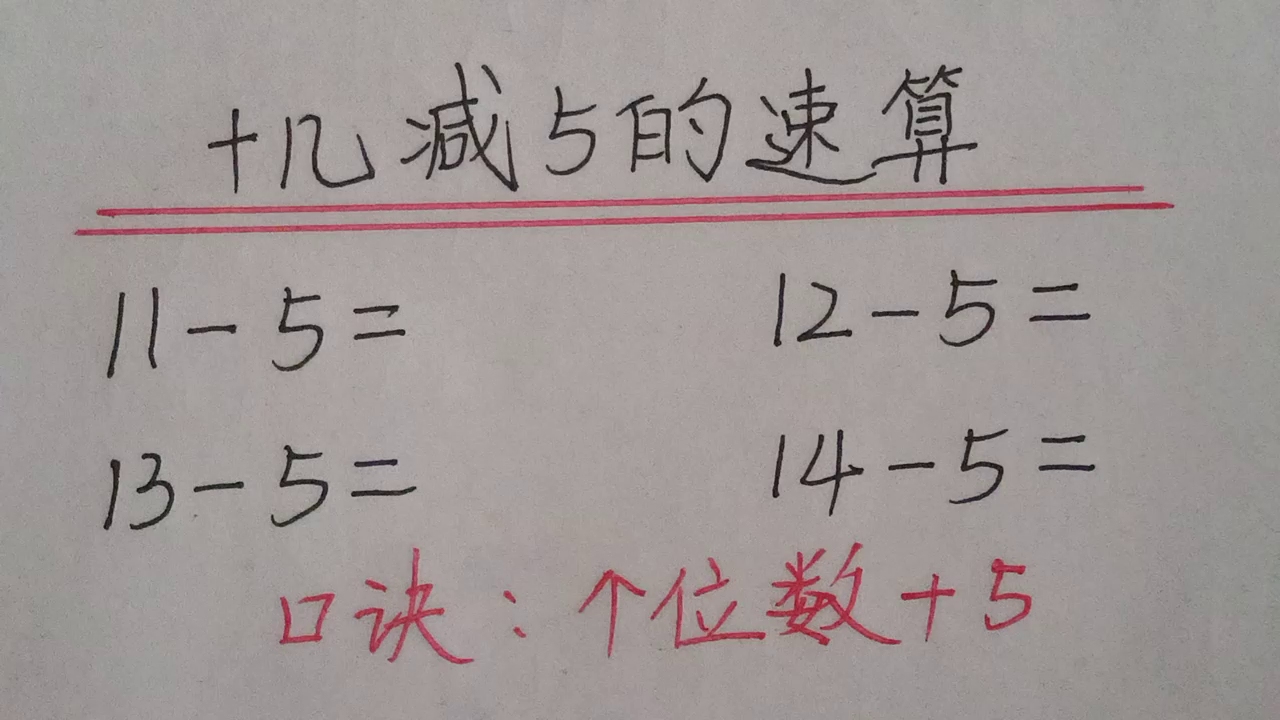 十几减5的速算
11-5= 12-5=
13-5= 14-5=
口诀：个位数+5